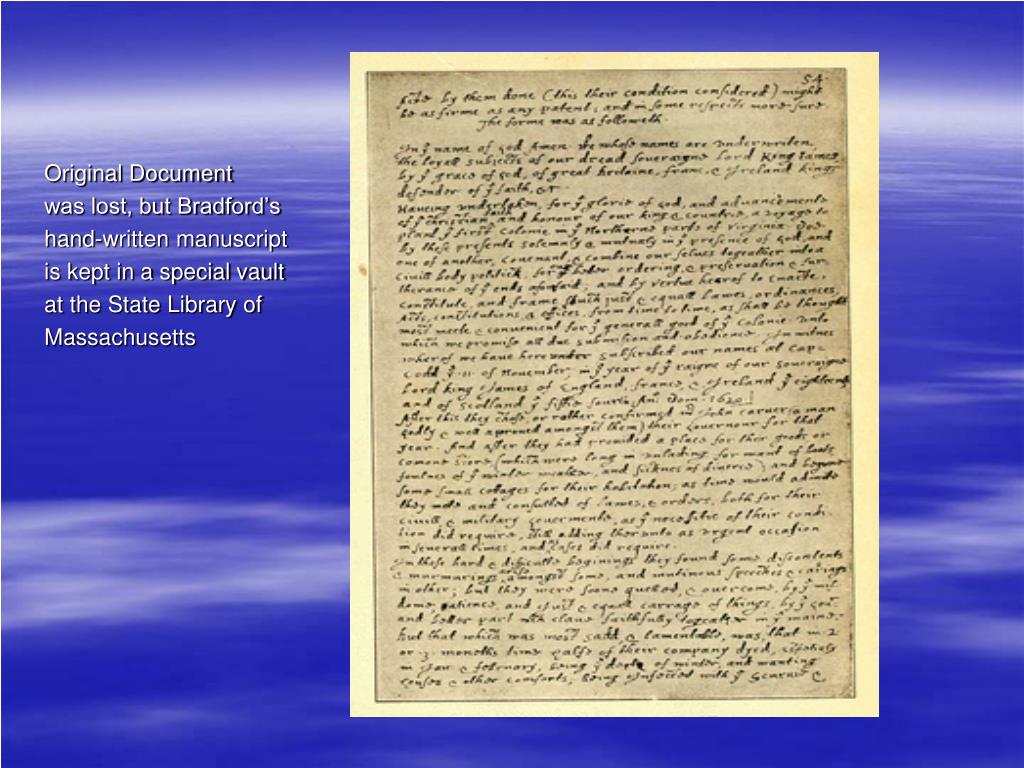 Original Document
was lost, but Bradford's
hand-written manuscript
is kept in a special vault
at the State Library of
Massachusetts
54.
by them done (this their condition considered) might
be as firme as any patent; and in some respects more sure.
The forme was as followeth.
In yͤ name of god Amen. We whose names are underwriten,
the loyall subjects of our dread soveraigne Lord King James,
by yͤ grace of god, of great britaine, franc, & Ireland king,
defender of yͤ faith, &c
Haveing undertaken, for yͤ glorie of god, and advancemente
of yͤ christian faith and honour of our king & countrie, a voyage to
plant yͤ first colonie in yͤ Northerne parts of virginia. Doe
by these presents solemnly & mutualy in yͤ presence of god, and
one of another, covenant, & combine our selves togeather into a
civill body politick; for yͤ better ordering, & preservation & fur-
therance of yͤ ends aforesaid; and by vertue hearof to enacte,
constitute, and frame shuch just & equall Lawes, ordinances,
Acts, constitutions, & offices, from time to time, as shall be thought
most meete & convenient for yͤ generall good of yͤ colonie: unto
which we promise all due submission and obedience. In witnes
wherof we have hereunder subscribed our names at cap-
Codd yͤ .11. of November, in yͤ year of yͤ raigne of our soveraigne
Lord king James of England, franc, & Ireland yͤ eighteenth
and of scotland yͤ fiftie fourth. An: Dom. 1620.
After this they chose, or rather confirmed mr John carver (a man
godly & well approved amongst them) their Governour for that
year. And after they had provided a place for their goods or
comone store, (which were long in unlading for want of boats,
foulnes of yͤ winter weather, and sicknes of diverce) and begune
some small cottages for their habitation; as time would admitte
they mette and consulted of lawes, & orders, both for their
civill & military govermente, as yͤ necessitie of their condi-
tion did require, still adding therunto as urgent occasion
in severall times, and as cases did require.
In these hard & difficulte beginings they found some discontents
& murmurings arise amongst some, and mutinous speeches & cariags
in other; but they were soone quelled, & overcome, by yͤ wis-
dome, patience, and just & equall carrage of things, by yͤ Govr
and better part wch clave faithfully togeather in yͤ maine.
But that which was most sadd, & lamentable, was, that in .2.
or .3. moneths time halfe of their company dyed, espetialy
in Jan: & february, being yͤ depth of winter, and wanting
houses & other comforts; being Infected with yͤ scurvie &